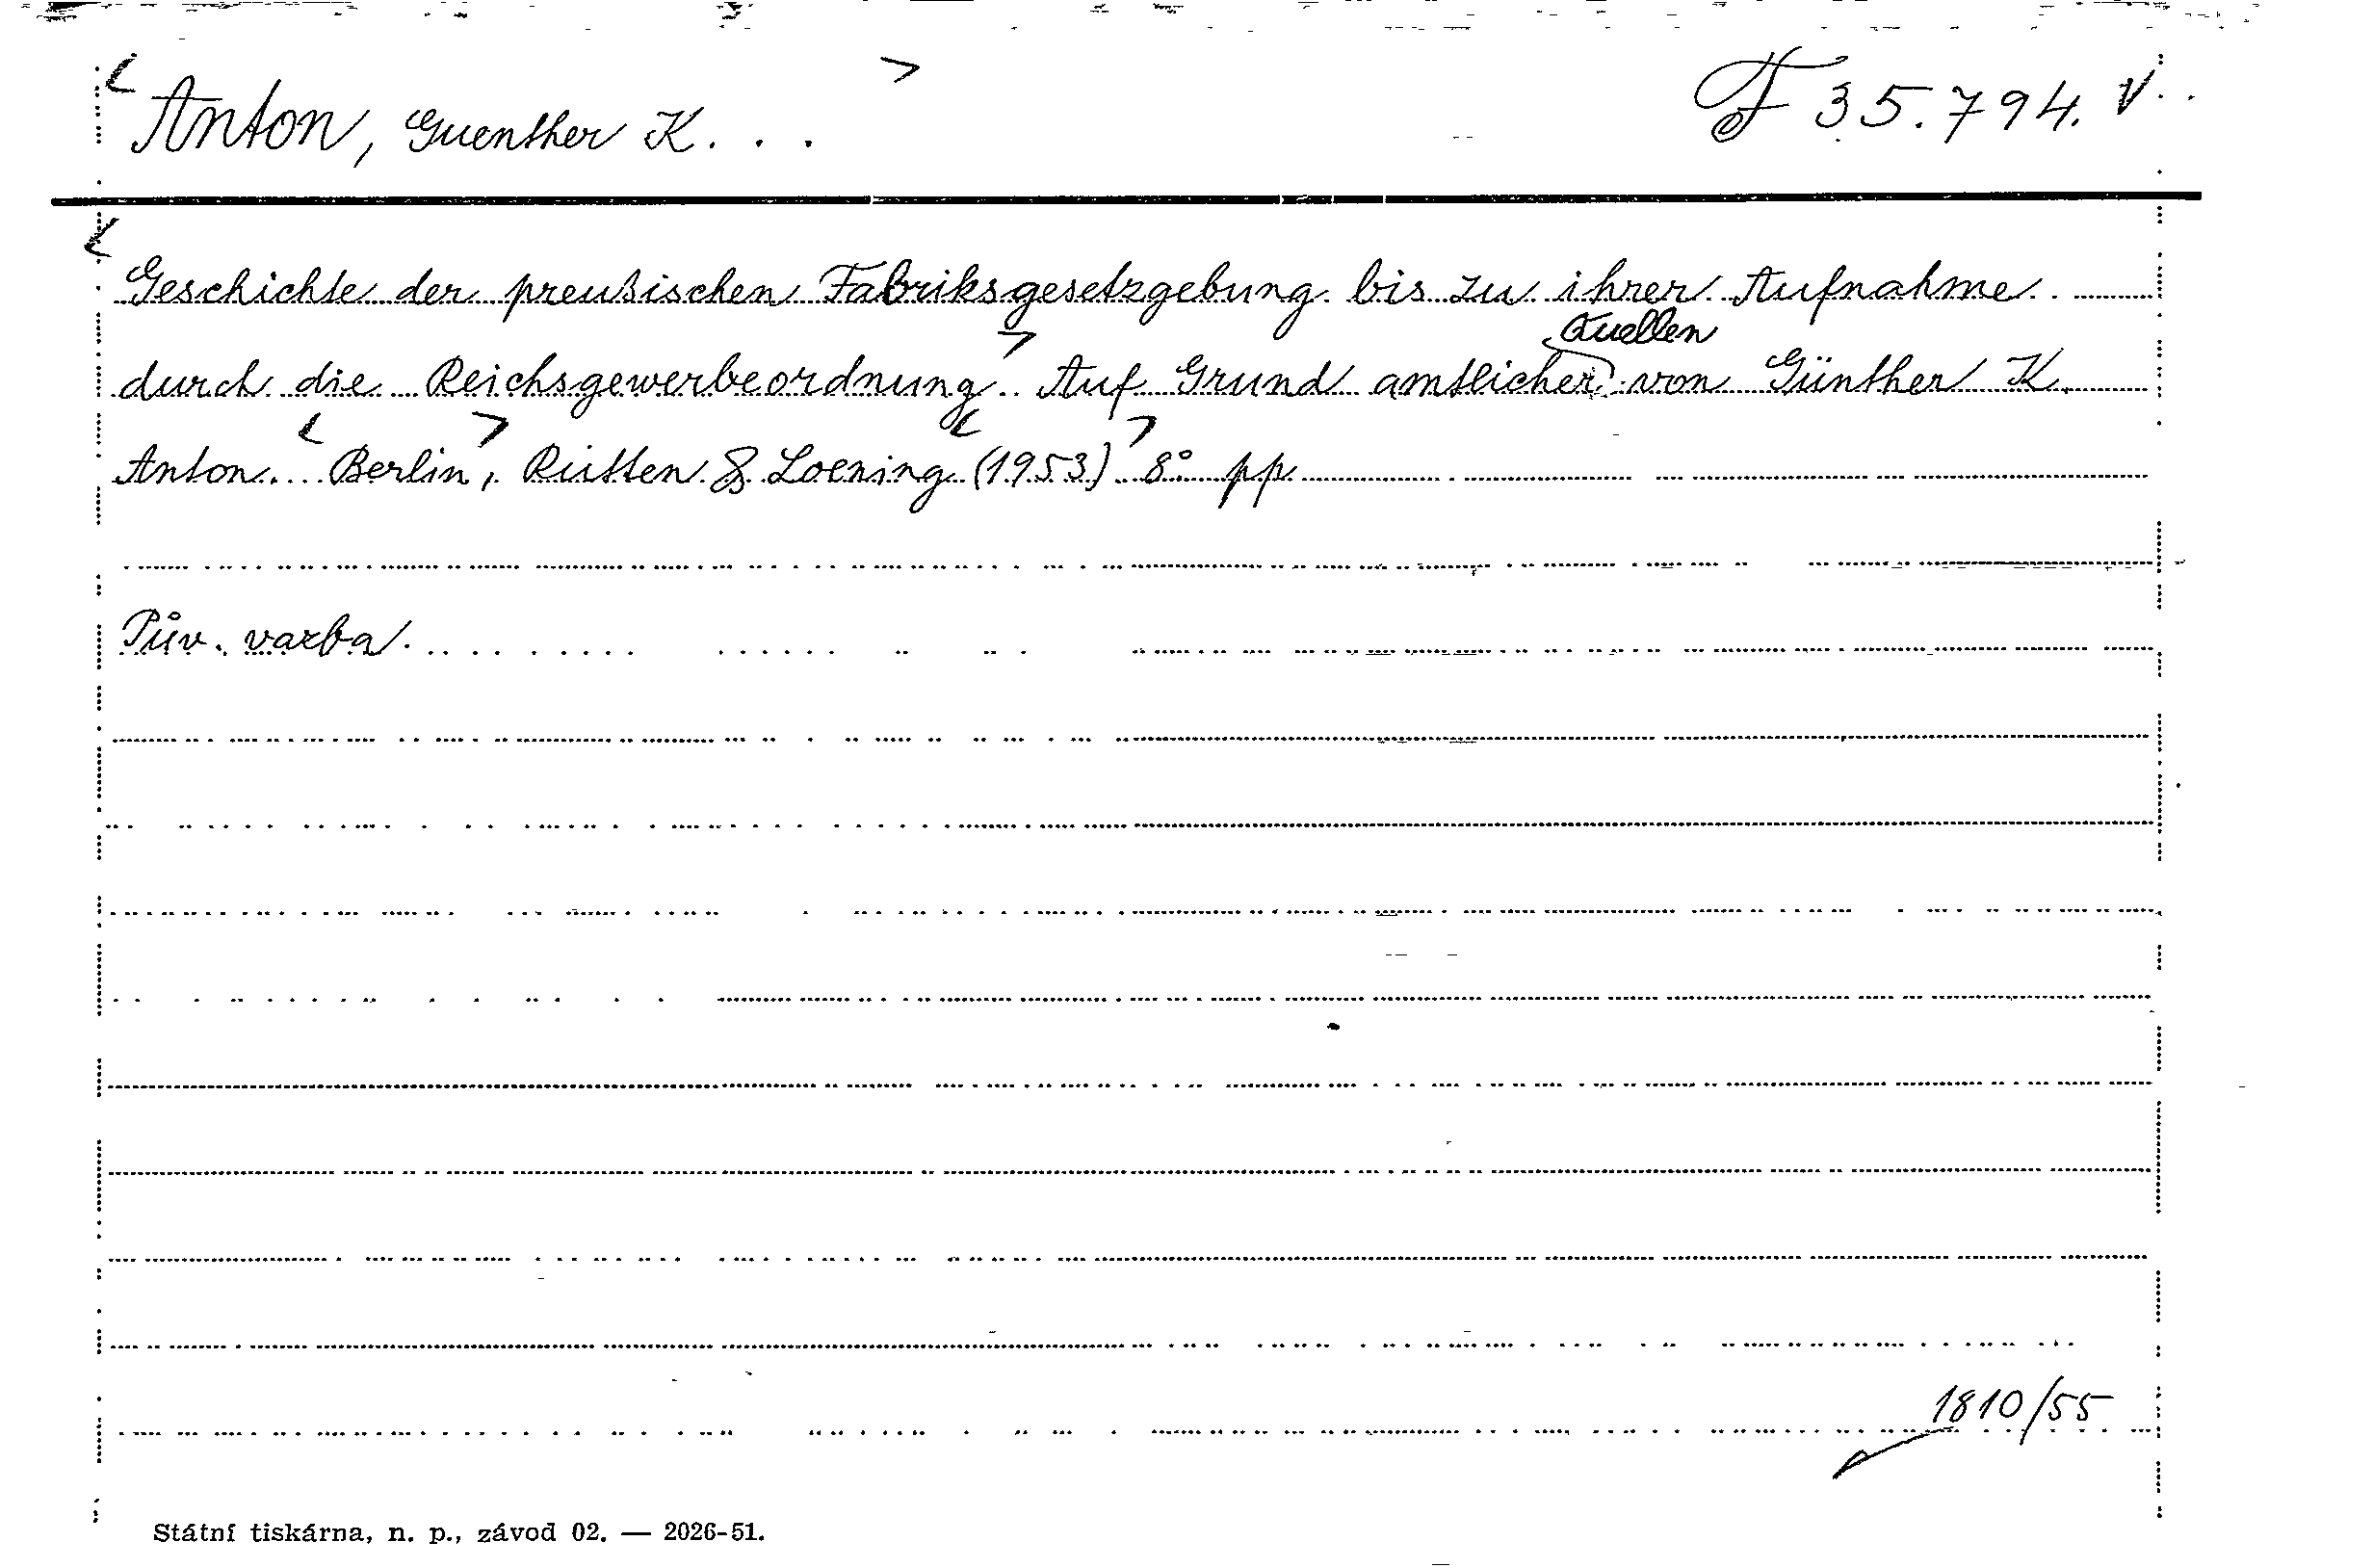 Anton, Guenther K... F 35.794. V
Geschichte der preußischen Fabriksgesetzgebung bis zu ihrer Aufnahme
durch die Reichsgewerbeordnung. Auf Grund amtlicher Quellen von Günther K.
Anton. Berlin, Rütten & Loening (1953) 8° pp
Pův. vazba.
1810/55
Státní tiskárna, n. p., závod 02. — 2026-51.